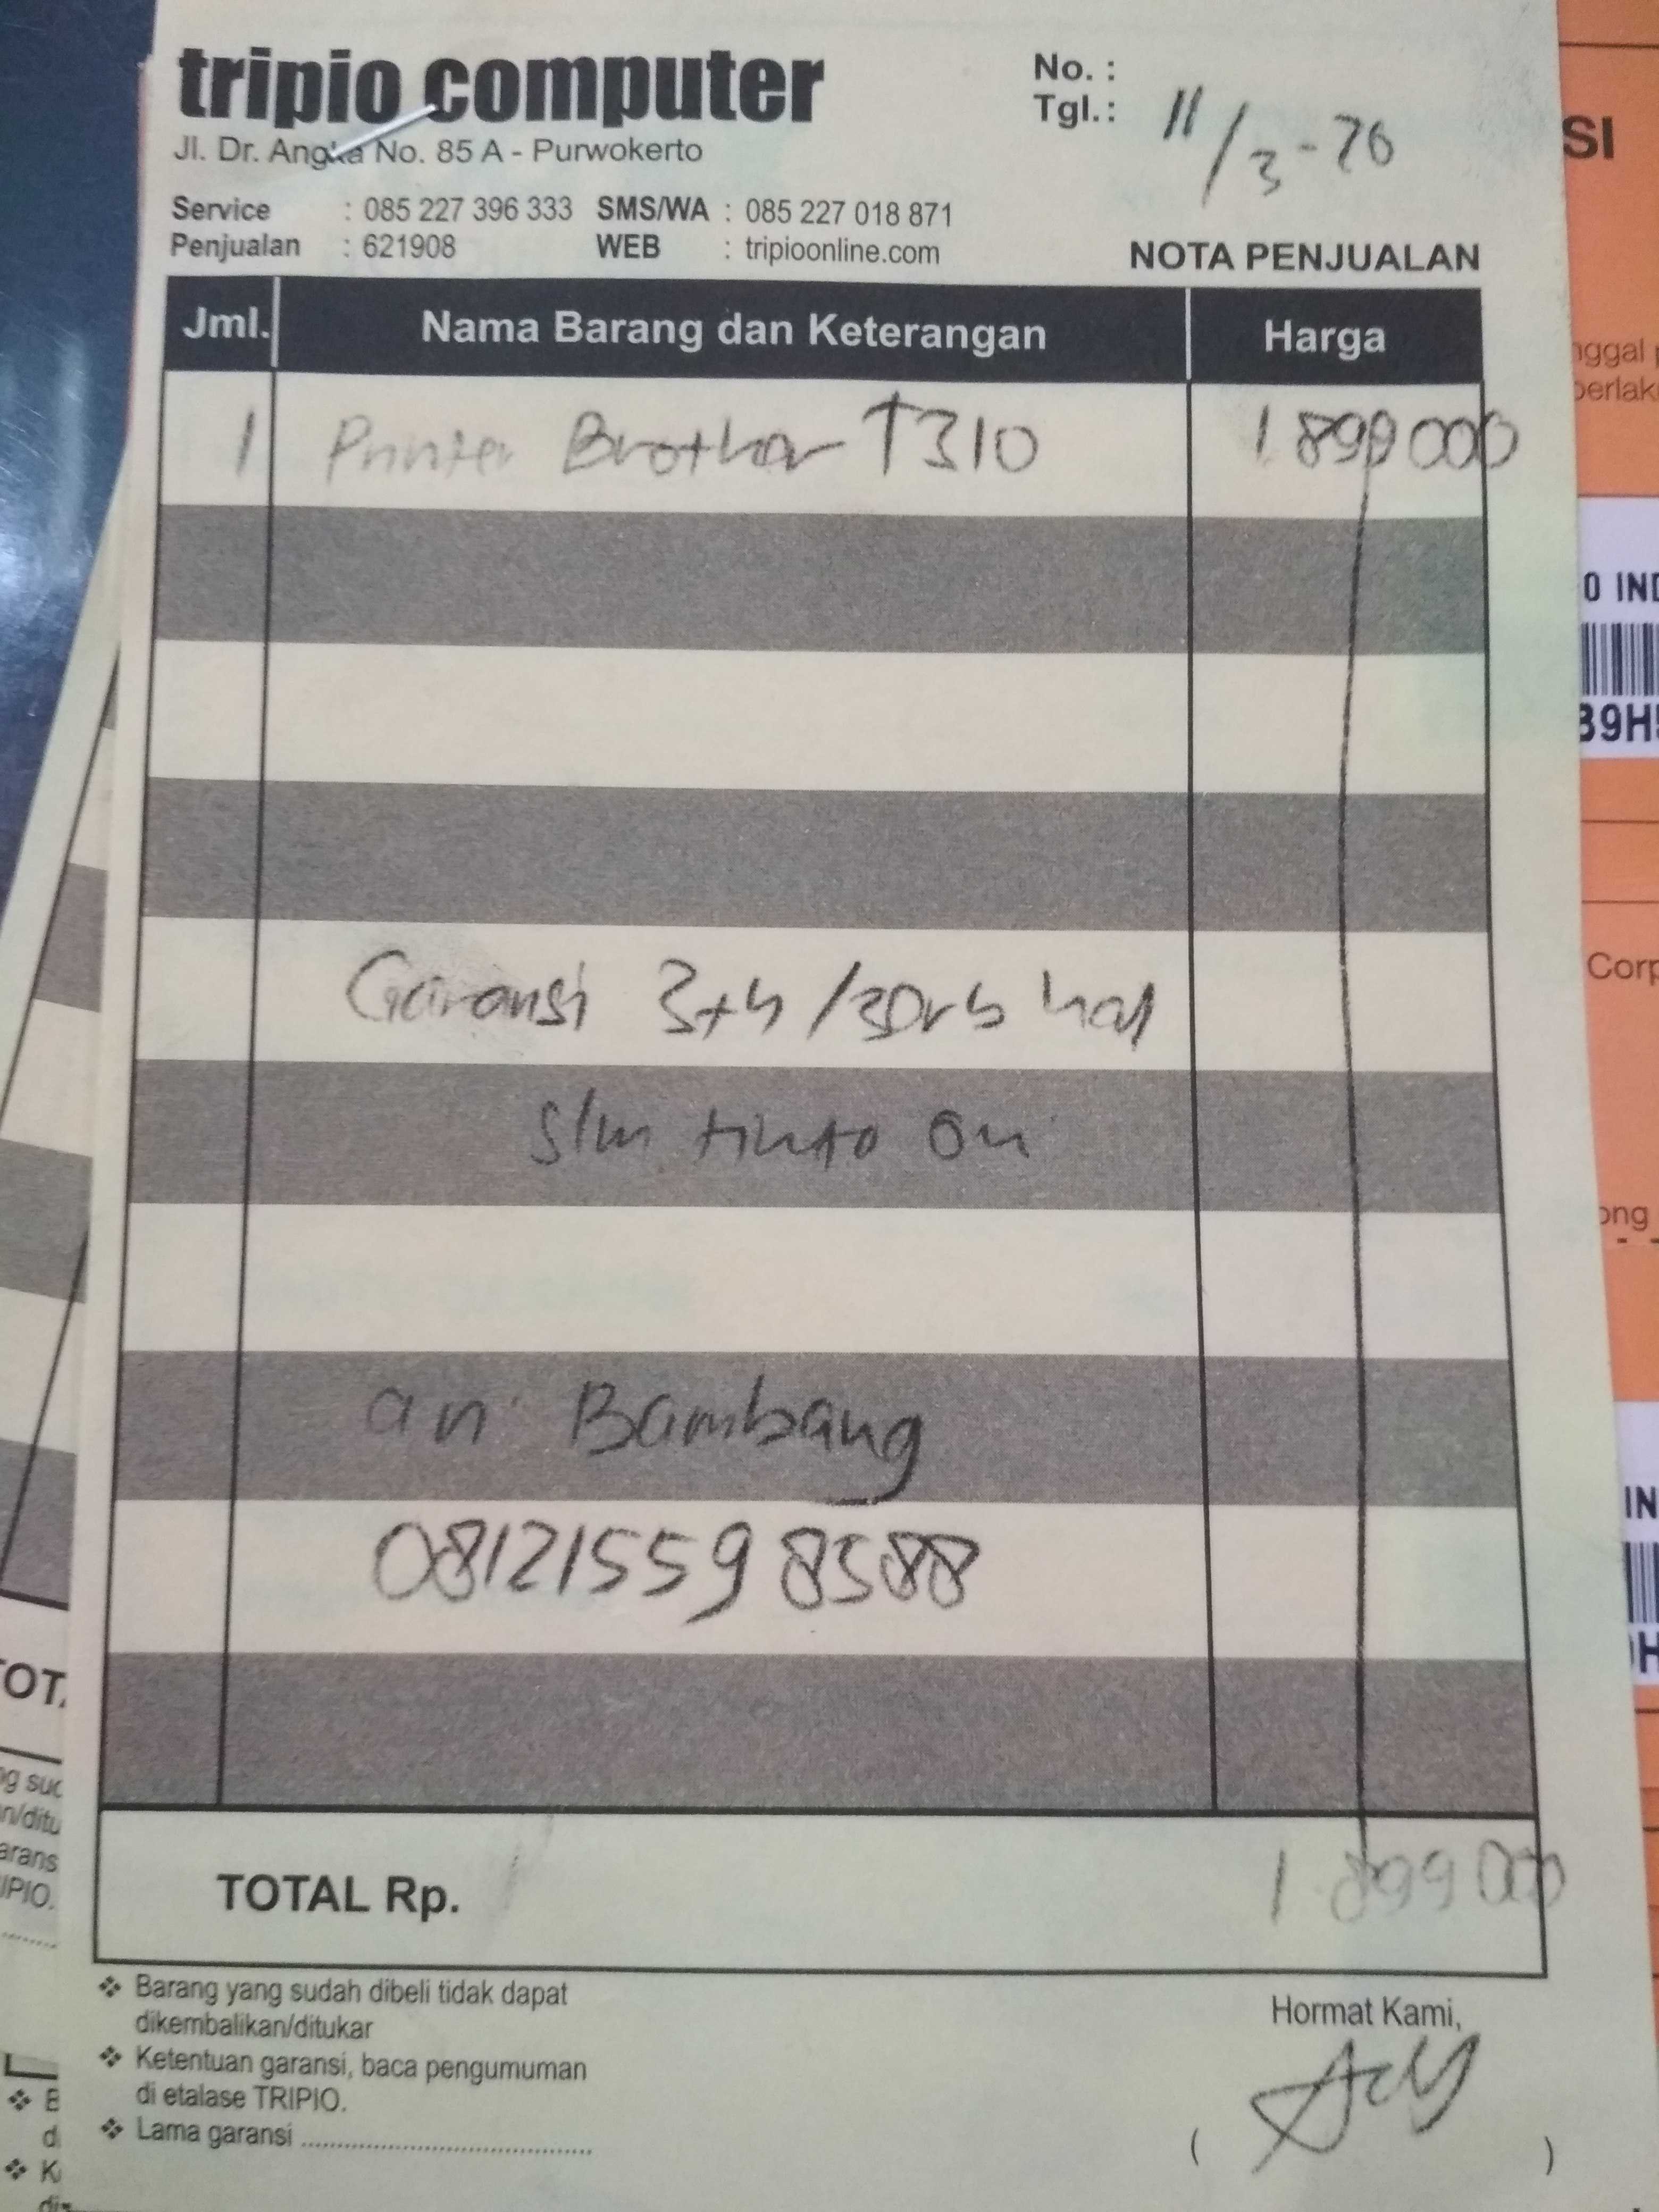 tripio computer
Jl. Dr. Angka No. 85 A - Purwokerto
Service : 085 227 396 333 SMS/WA : 085 227 018 871
Penjualan : 621908 WEB : tripioonline.com
No. :
Tgl.: 11/3-26
NOTA PENJUALAN
Jml. Nama Barang dan Keterangan Harga
1 Printer Brother T310 1 899 000
Garansi 3th /30rb hal
slm tinta ori
an. Bambang
081215598588
TOTAL Rp. 1 899 000
❖ Barang yang sudah dibeli tidak dapat
dikembalikan/ditukar
❖ Ketentuan garansi, baca pengumuman
di etalase TRIPIO.
❖ Lama garansi ........................................
Hormat Kami,
( )
SI
nggal
berlak
0 IND
B9H
Corp
ong
IN
OT
ng sud
n/ditu
arans
IPIO.